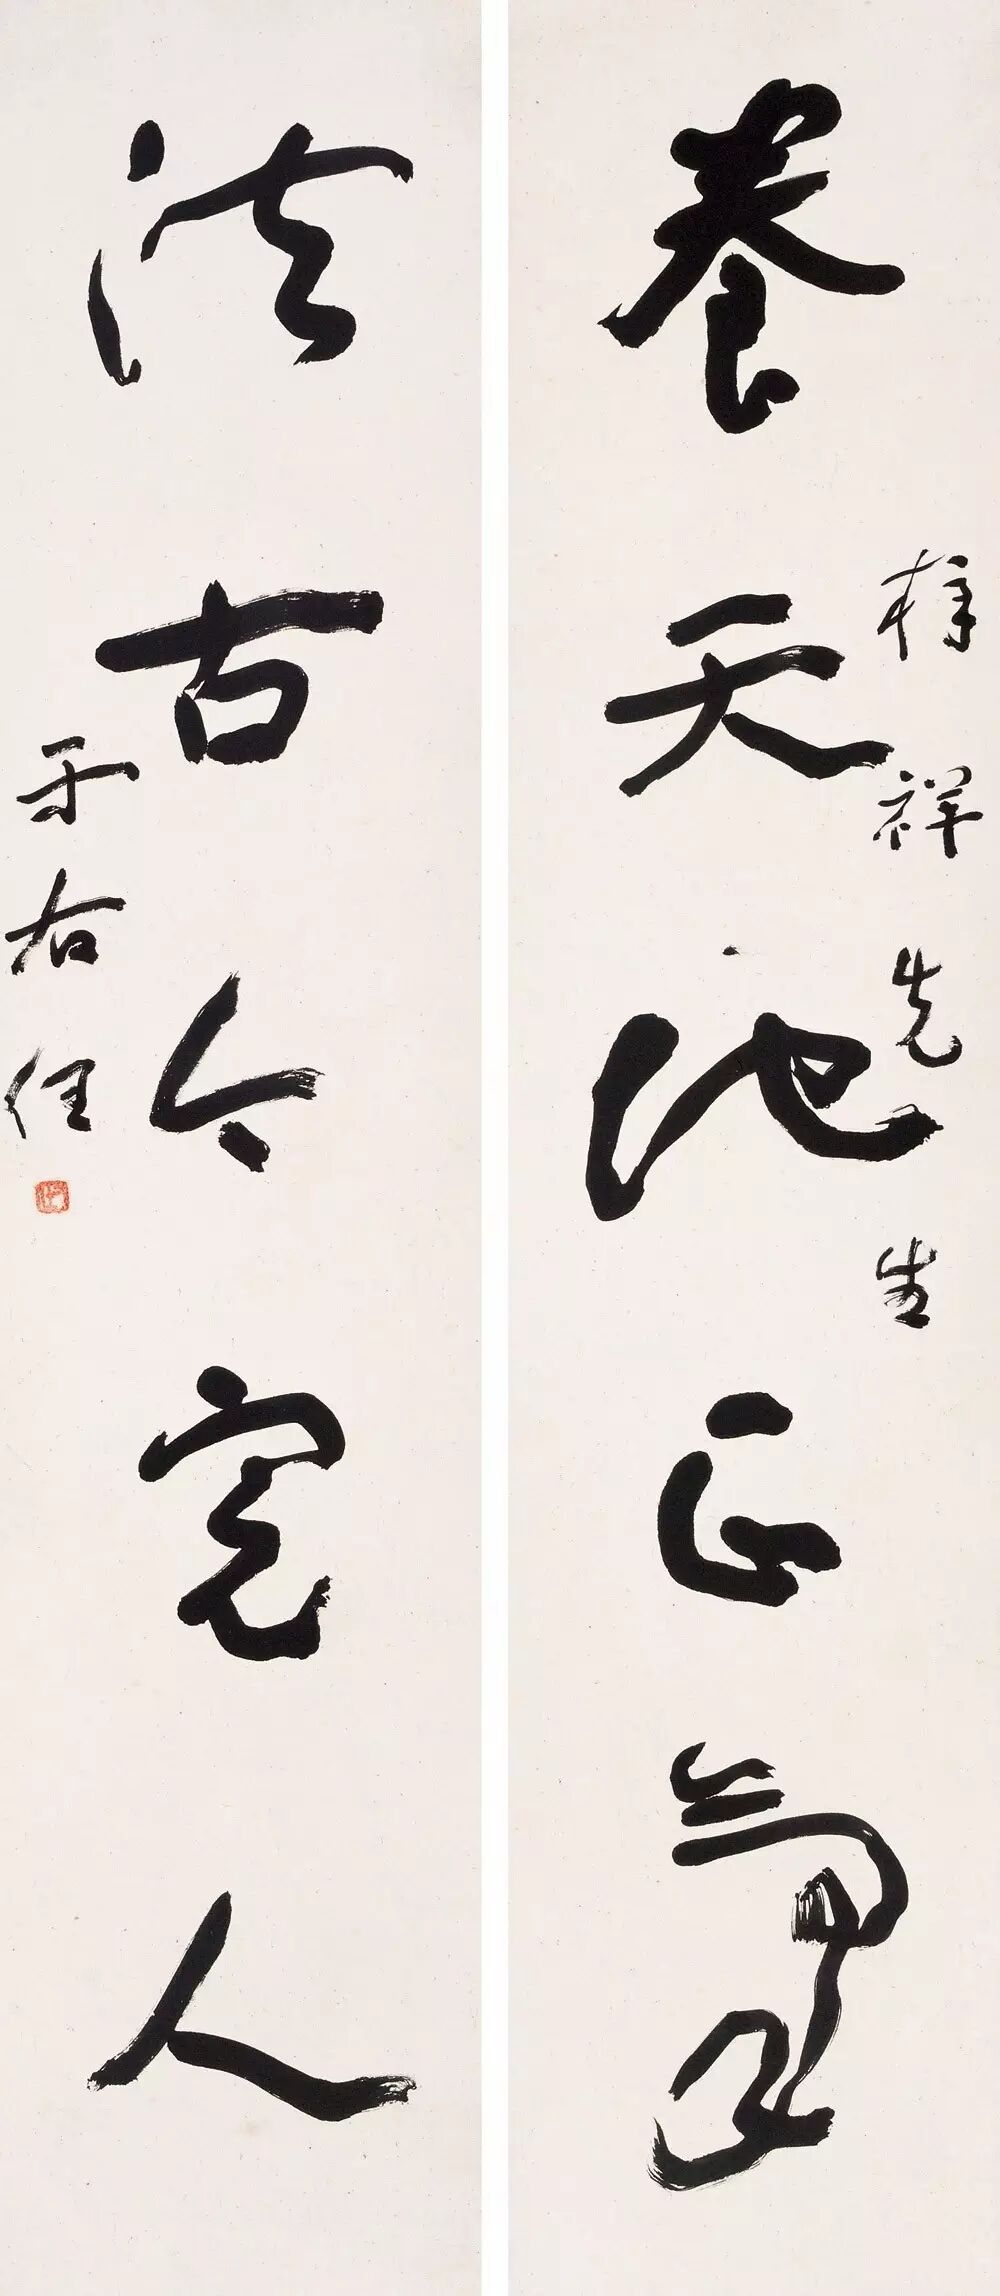 梓祥先生
養天地正氣
法古今完人
于右任